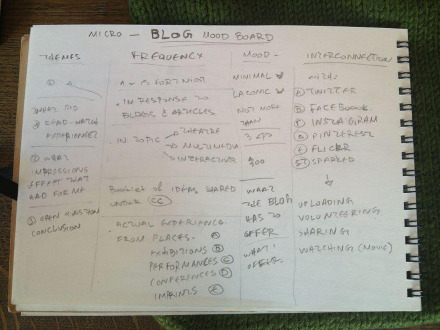 MICRO - BLOG MOOD BOARD
THEMES
①
WHAT DO
EXPERIENCES
② WHAT
IMPRESSIONS
EFFECT THAT
HAD FOR ME
③ OPEN QUESTION
CONCLUSION
FREQUENCY
IN RESPONSE TO
BLOGS & ARTICLES
IN TOPIC → THEATRE
→ MULTIMEDIA
→ INTERACTIVE
BOOKLET OF IDEAS SHARED
UNDER CC
ACTUAL EXPERIENCE
FROM PLACES
EXHIBITIONS
PERFORMANCES
CONFERENCES
IMPRINTS
MOOD -
MINIMAL
LACONIC
NOT MORE
THAN
300
WHAT
THE BLOG
HAS TO
OFFER
WHAT I
INTERCONNECTION
WITH:
TWITTER
FACEBOOK
INSTAGRAM
PINTEREST
FLICKR
↓
UPLOADING
VOLUNTEERING
SHARING
WATCHING (MOVIE)